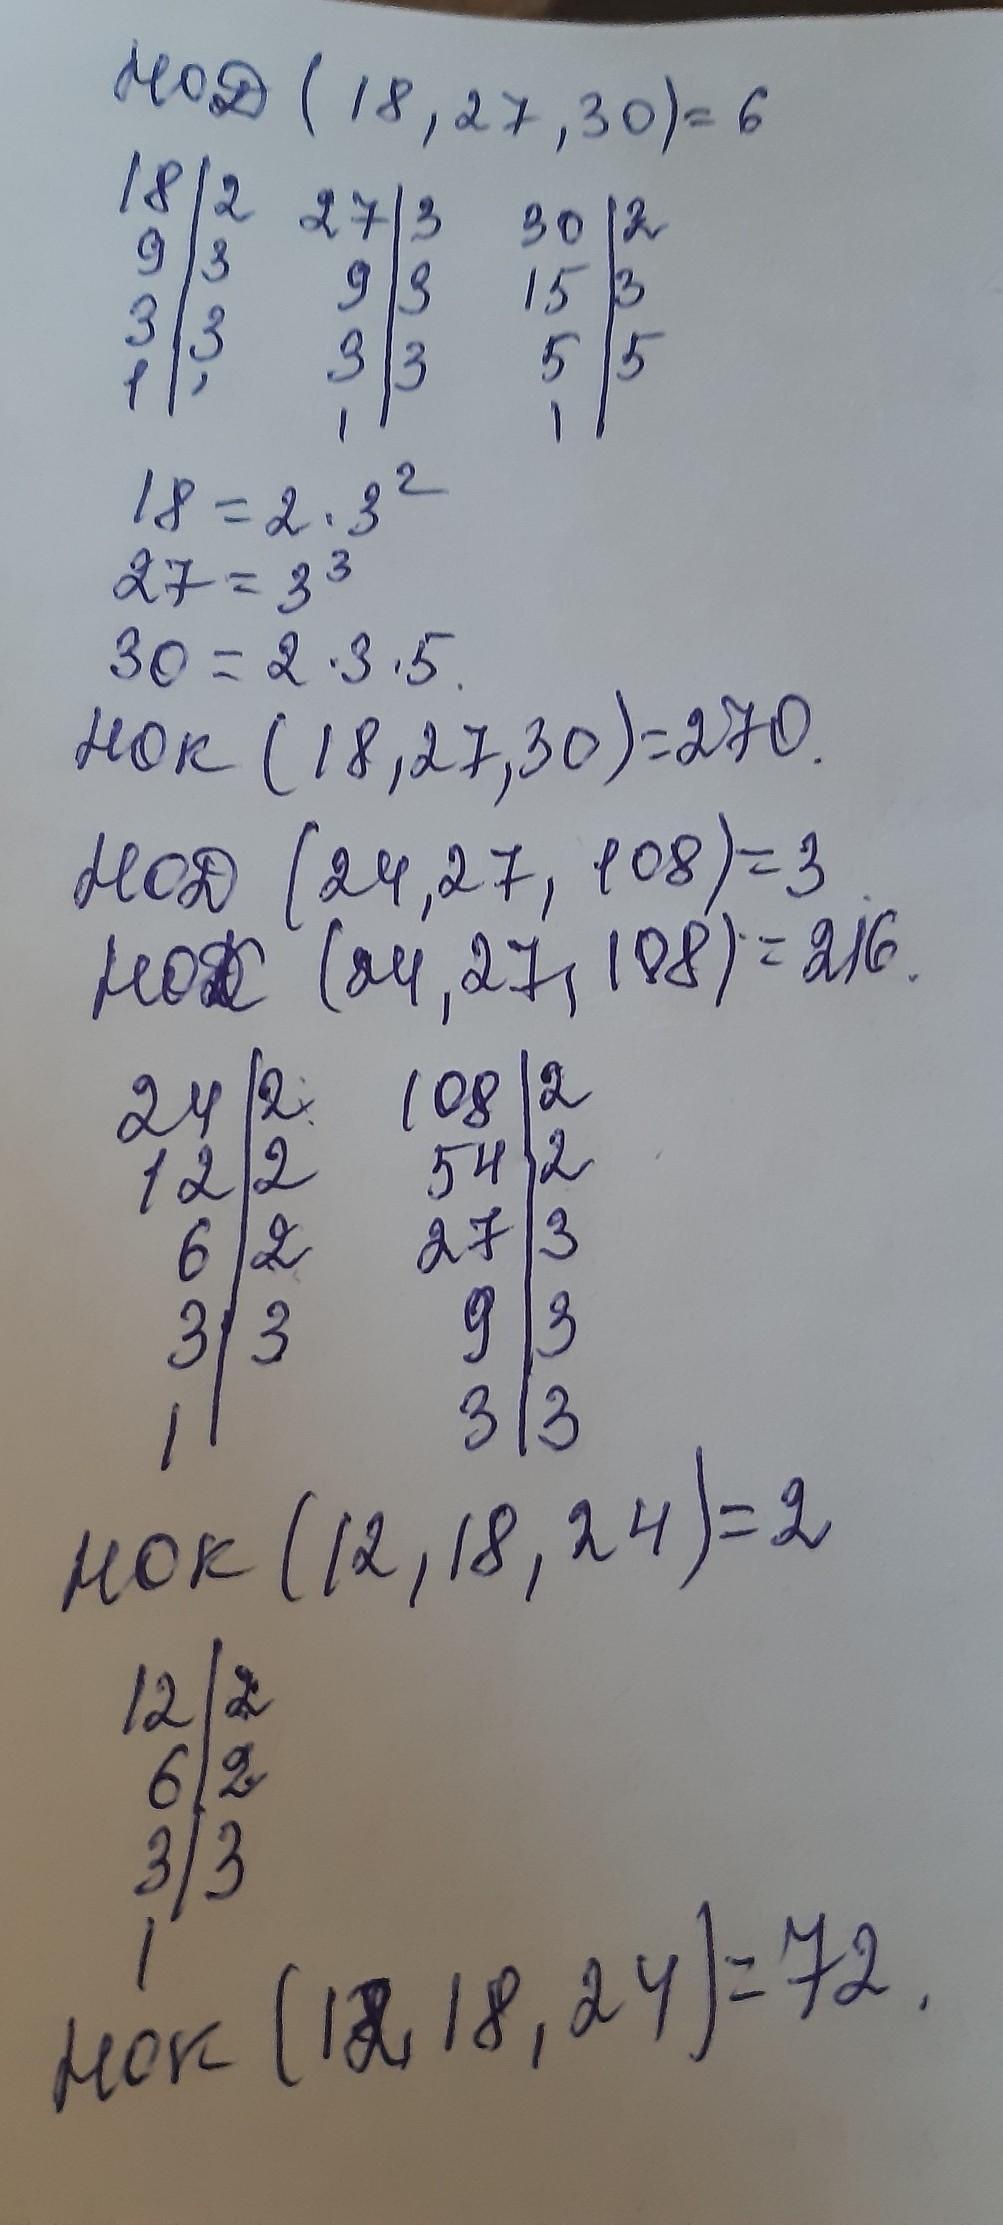 НОД (18,27,30)=6
18|2 27|3 30|2
9|3 9|3 15|3
3|3 3|3 5|5
1| 1| 1|
18 = 2 · 3²
27 = 3³
30 = 2 · 3 · 5.
НОК (18,27,30)=270.
НОД (24,27,108)=3
НОК (24,27,108)=216.
24|2 108|2
12|2 54|2
6|2 27|3
3|3 9|3
1| 3|3
НОК (12,18,24)=2
12|2
6|2
3|3
1
НОК (12,18,24)=72.